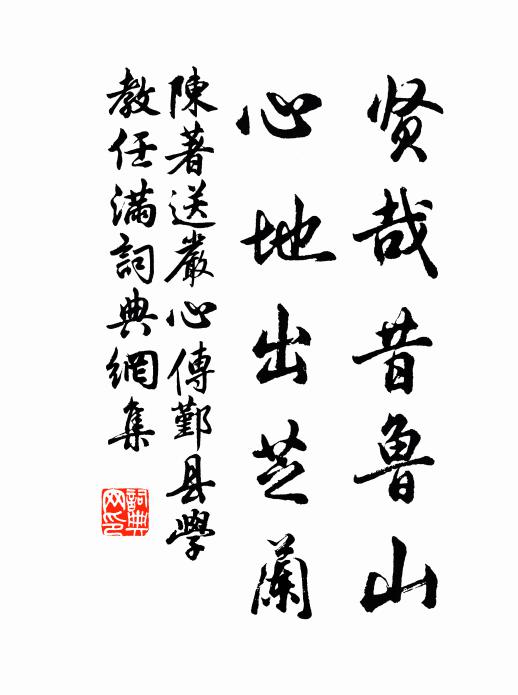 贤哉昔鲁山
心地出芝蘭
陳著送嚴心傳鄞县學
教任满詞典網集
詞典网印